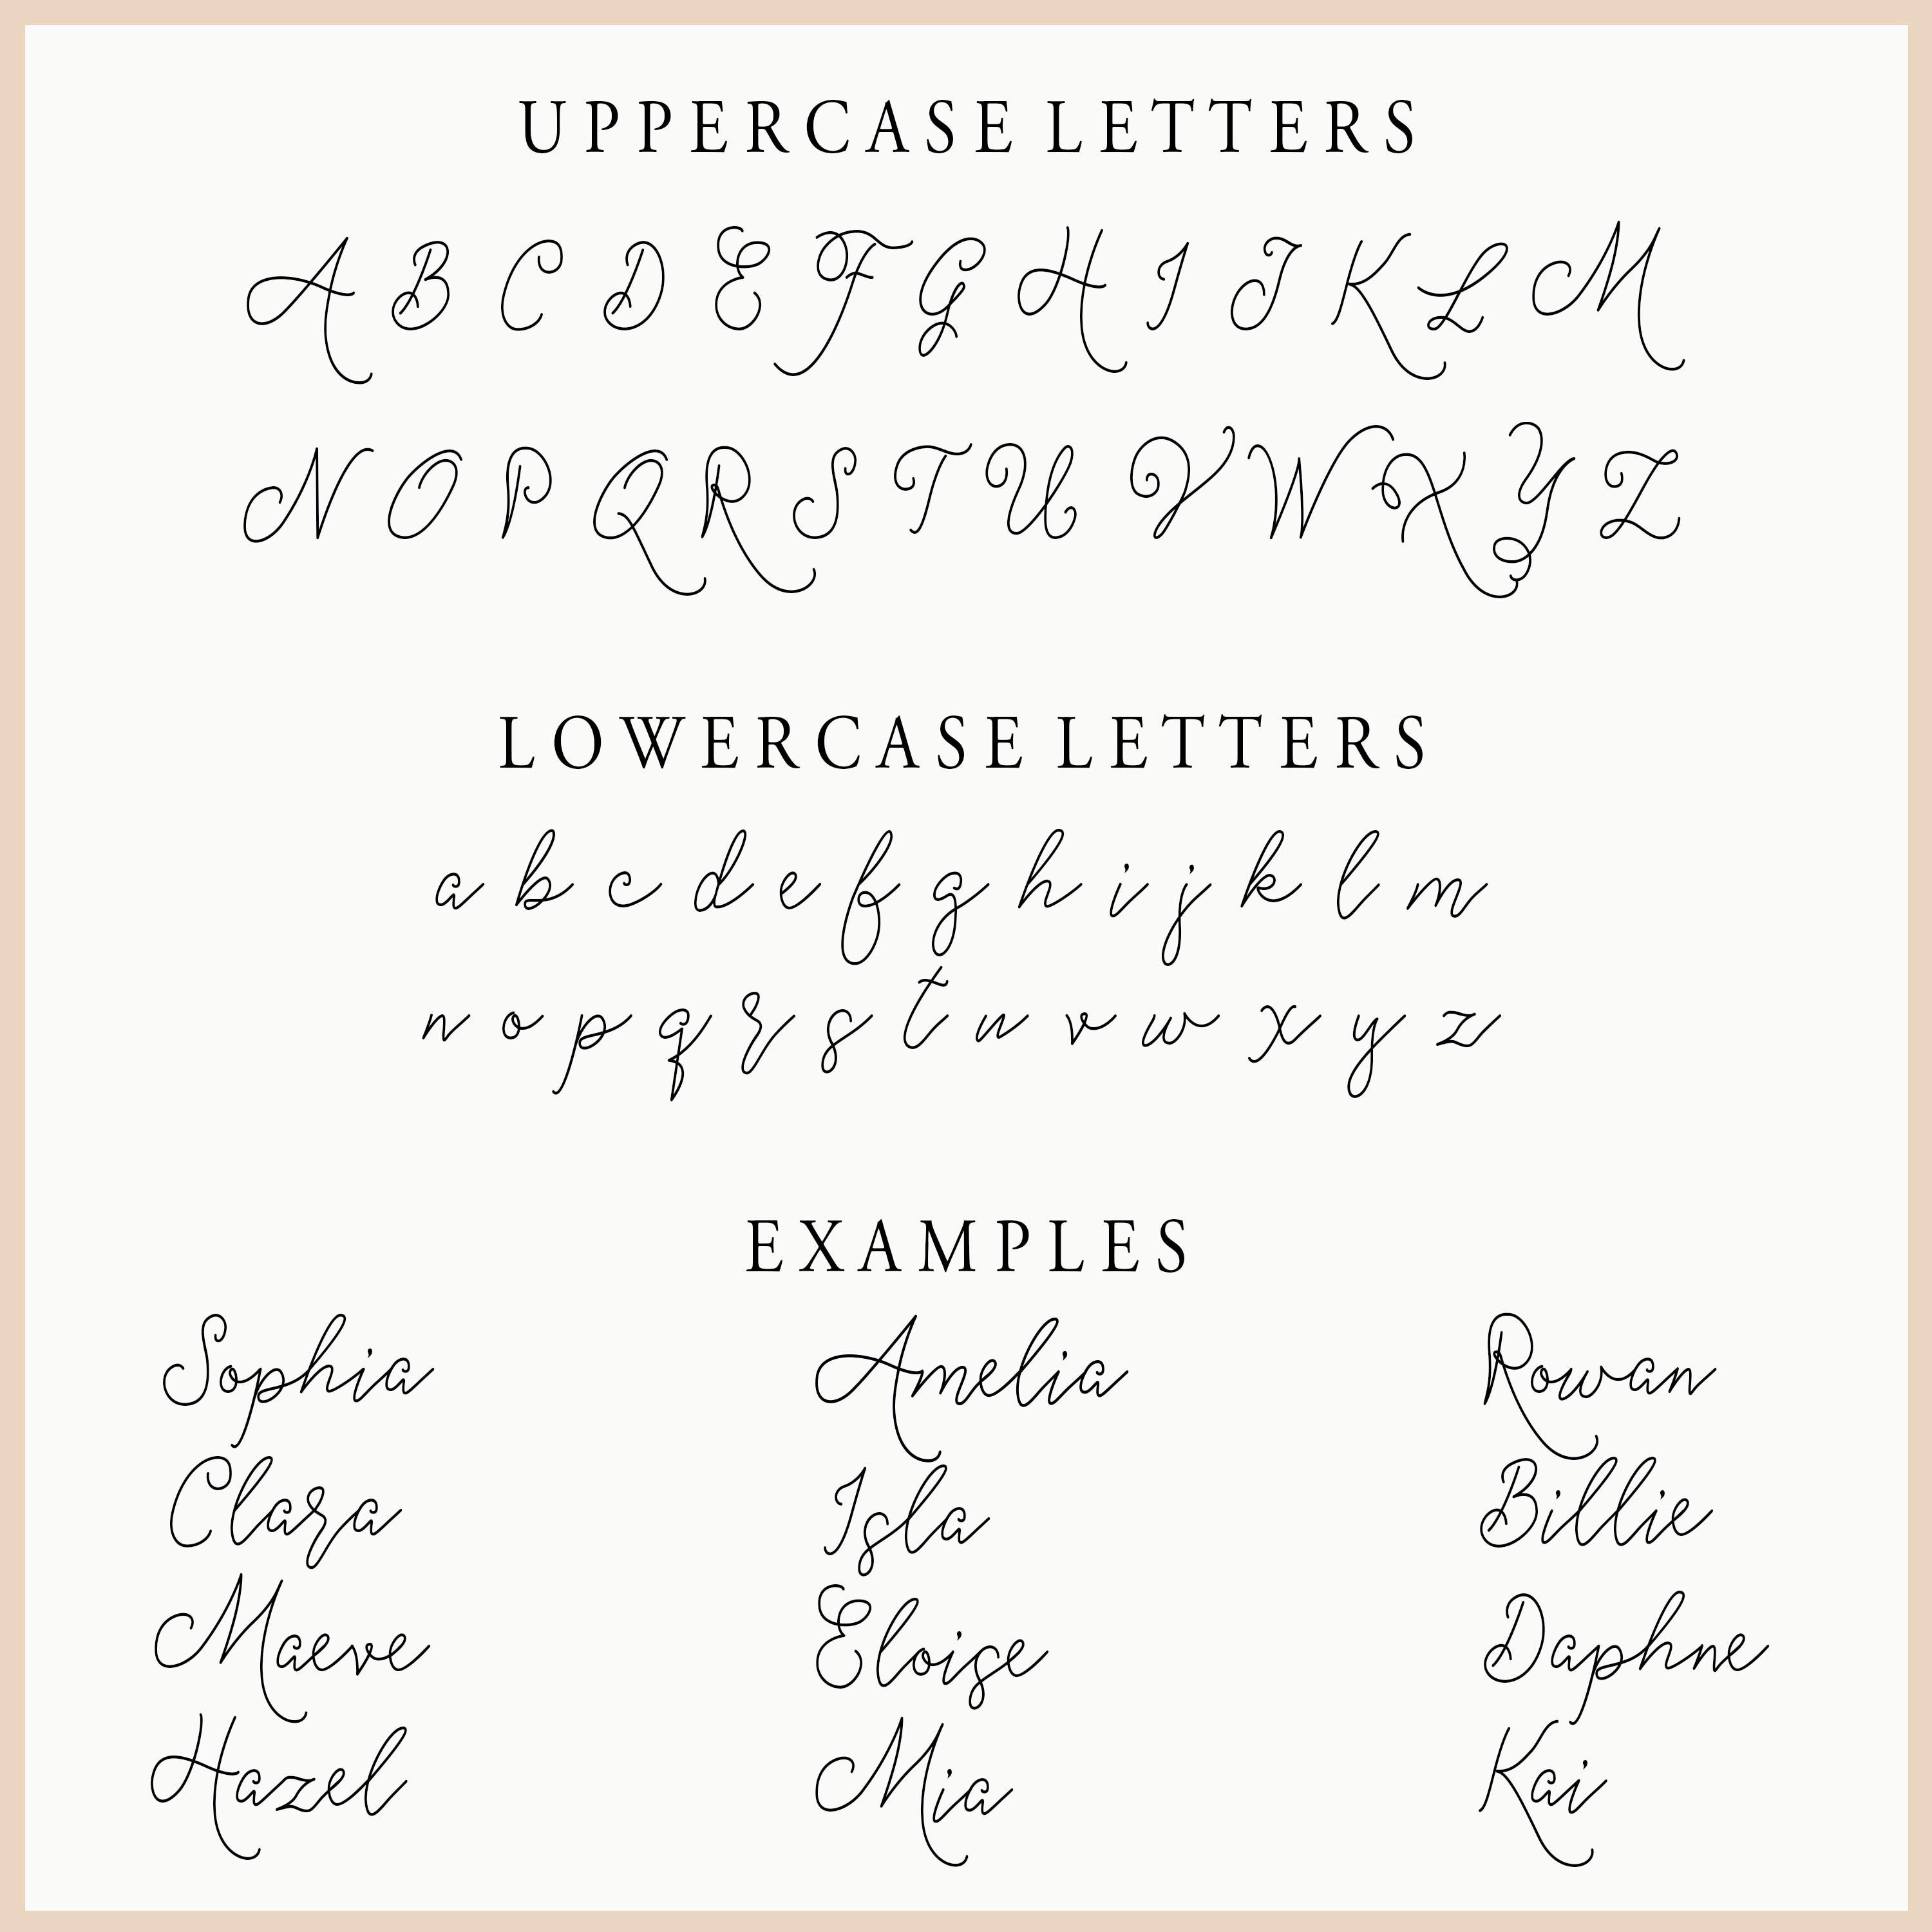 UPPERCASE LETTERS
A B C D E F G H I J K L M
N O P Q R S T U V W X Y Z
LOWERCASE LETTERS
a b c d e f g h i j k l m
n o p q r s t u v w x y z
EXAMPLES
Sophia Amelia Rowan
Clara Isla Billie
Maeve Eloise Daphne
Hazel Mia Kai